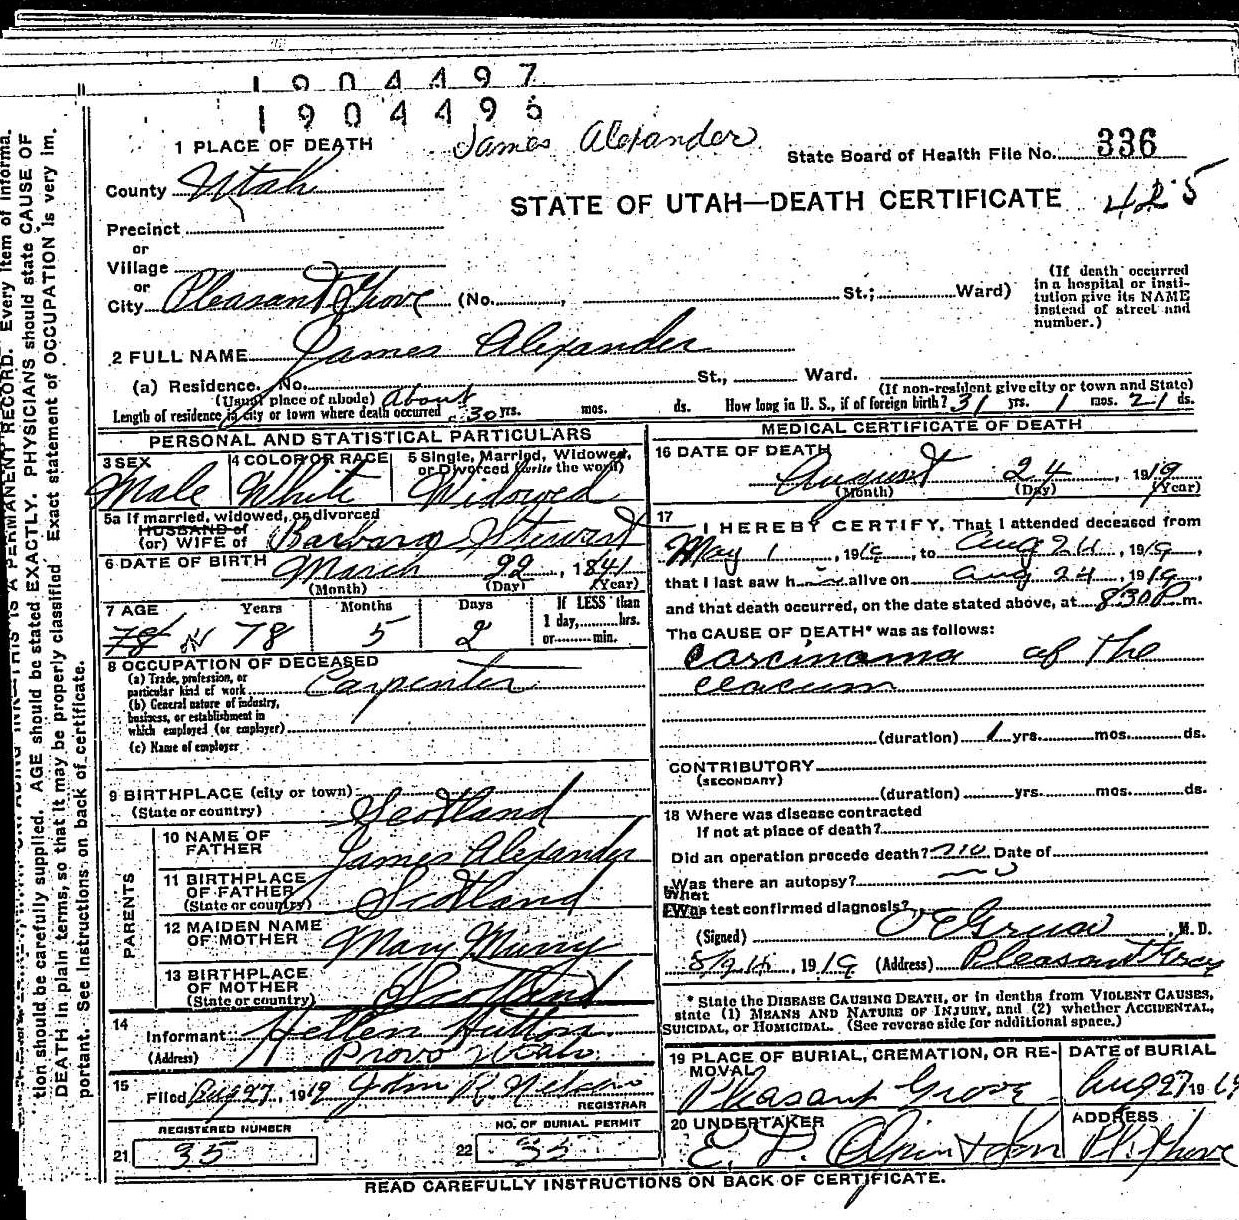 1904497
1904496
James Alexander
1 PLACE OF DEATH
State Board of Health File No. 336
County Utah
STATE OF UTAH—DEATH CERTIFICATE 425
Precinct
or
Village
or
City Pleasant Grove (No. , St.; Ward)
(If death occurred in a hospital or insti-
tution give its NAME
instead of street and
number.)
2 FULL NAME James Alexander
(a) Residence. No. St., Ward.
(Usual place of abode) About (If non-resident give city or town and State)
Length of residence in city or town where death occurred 30 yrs. mos. ds. How long in U. S., if of foreign birth? 31 yrs. 1 mos. 21 ds.
PERSONAL AND STATISTICAL PARTICULARS
3 SEX Male
4 COLOR OR RACE White
5 Single, Married, Widowed, or Divorced (write the word) Widowed
5a If married, widowed, or divorced
HUSBAND of
(or) WIFE of Barbara Stewart
6 DATE OF BIRTH March 22, 1841
(Month) (Day) (Year)
7 AGE Years Months Days If LESS than
78 78 5 2 1 day, hrs.
or min.
8 OCCUPATION OF DECEASED
(a) Trade, profession, or
particular kind of work Carpenter
(b) General nature of industry,
business, or establishment in
which employed (or employer)
(c) Name of employer
9 BIRTHPLACE (city or town)
(State or country) Scotland
PARENTS
10 NAME OF
FATHER James Alexander
11 BIRTHPLACE
OF FATHER
(State or country) Scotland
12 MAIDEN NAME
OF MOTHER Mary Murry
13 BIRTHPLACE
OF MOTHER
(State or country) Scotland
14
Informant Hellen Hutton
(Address) Provo Utah.
15
Filed Aug 27, 1919 John R. Nelson
REGISTRAR
REGISTERED NUMBER
21 35
NO. OF BURIAL PERMIT
22 35
MEDICAL CERTIFICATE OF DEATH
16 DATE OF DEATH
August 24, 1919
(Month) (Day) (Year)
17 I HEREBY CERTIFY, That I attended deceased from
May 1, 1919, to Aug 24, 1919,
that I last saw h im alive on Aug 24, 1919,
and that death occurred, on the date stated above, at 830 P m.
The CAUSE OF DEATH* was as follows:
Carcinoma of the
ceacum
(duration) 1 yrs. mos. ds.
CONTRIBUTORY
(SECONDARY)
(duration) yrs. mos. ds.
18 Where was disease contracted
If not at place of death?
Did an operation precede death? no Date of
Was there an autopsy?
What
Was test confirmed diagnosis?
(Signed) , M. D.
, 1919 (Address) Pleasant Grove
* State the DISEASE CAUSING DEATH, or in deaths from VIOLENT CAUSES,
state (1) MEANS AND NATURE OF INJURY, and (2) whether ACCIDENTAL,
SUICIDAL, or HOMICIDAL. (See reverse side for additional space.)
19 PLACE OF BURIAL, CREMATION, OR RE-
MOVAL
Pleasant Grove
DATE of BURIAL
Aug 27 1919
20 UNDERTAKER
ADDRESS
Pl. Grove
READ CAREFULLY INSTRUCTIONS ON BACK OF CERTIFICATE.
THIS IS A PERMANENT RECORD. Every item of informa-
tion should be carefully supplied. AGE should be stated EXACTLY. PHYSICIANS should state CAUSE OF
DEATH in plain terms, so that it may be properly classified. Exact statement of OCCUPATION is very im-
portant. See instructions on back of certificate.